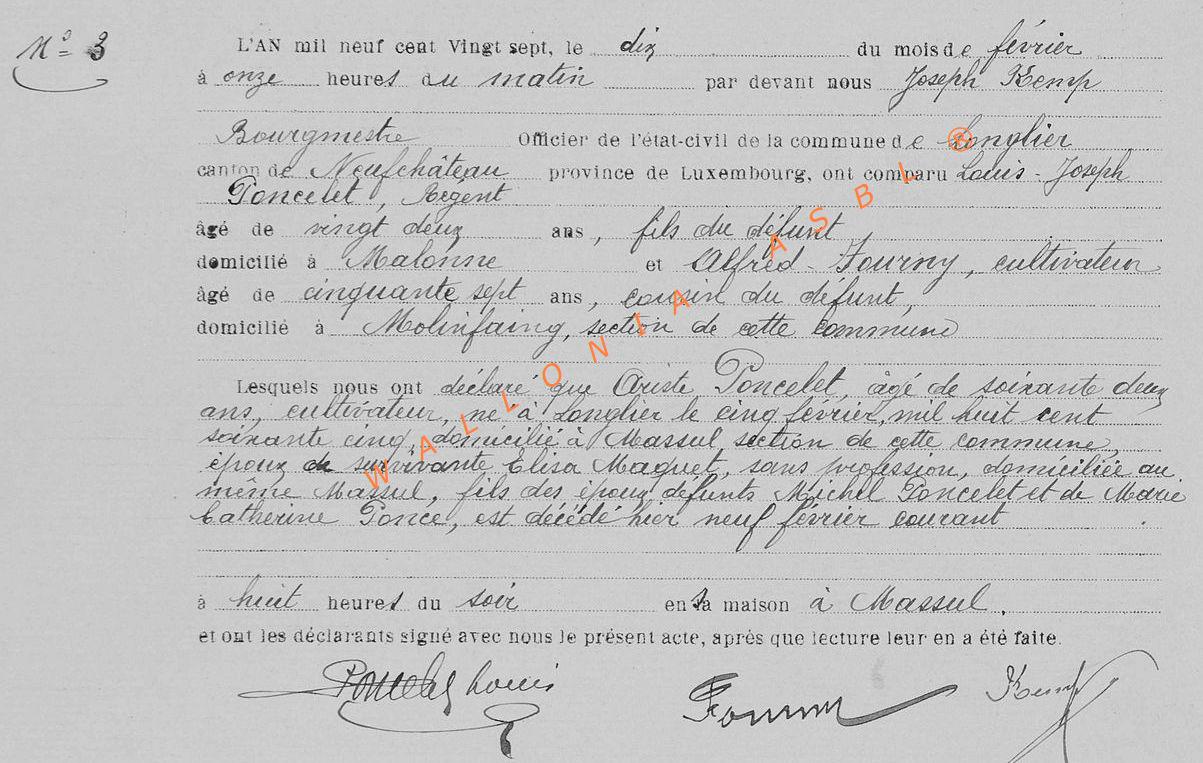 Nº 3
L'AN mil neuf cent Vingt sept, le dix du mois de février
à onze heures du matin par devant nous Joseph Kemp
Bourgmestre Officier de l'état-civil de la commune de Longlier
canton de Neufchâteau province de Luxembourg, ont comparu Louis-Joseph
Poncelet, Régent
âgé de vingt deux ans, fils du défunt
domicilié à Malonne et Alfred Fourny, cultivateur
âgé de cinquante sept ans, cousin du défunt,
domicilié à Molinfaing, section de cette commune
Lesquels nous ont déclaré que Oriste Poncelet, âgé de soixante deux
ans, cultivateur, né à Longlier le cinq février, mil huit cent
soixante cinq, domicilié à Massul section de cette commune,
époux de survivante Elisa Maquet, sans profession, domiciliée au
même Massul, fils des époux défunts Michel Poncelet et de Marie
Catherine Ponce, est décédé hier neuf février courant
à huit heures du soir en sa maison à Massul.
et ont les déclarants signé avec nous le présent acte, après que lecture leur en a été faite.
Poncelet Louis Fourny Kemp
WALLONIA ASBL ®